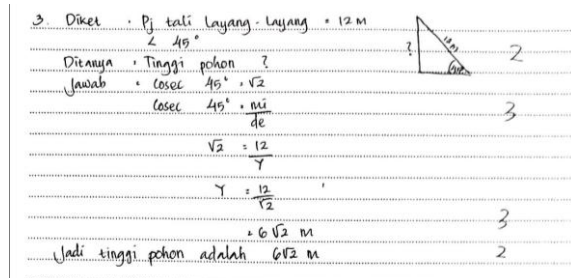 3. Diket : Pj tali Layang-Layang = 12 M
∠ 45°
12 m
?
2
Ditanya : Tinggi pohon ?
Jawab : Cosec 45° = √2
Cosec 45° = mi/de
3
√2 = 12/Y
Y = 12/√2
= 6√2 m
3
Jadi tinggi pohon adalah 6√2 m
2